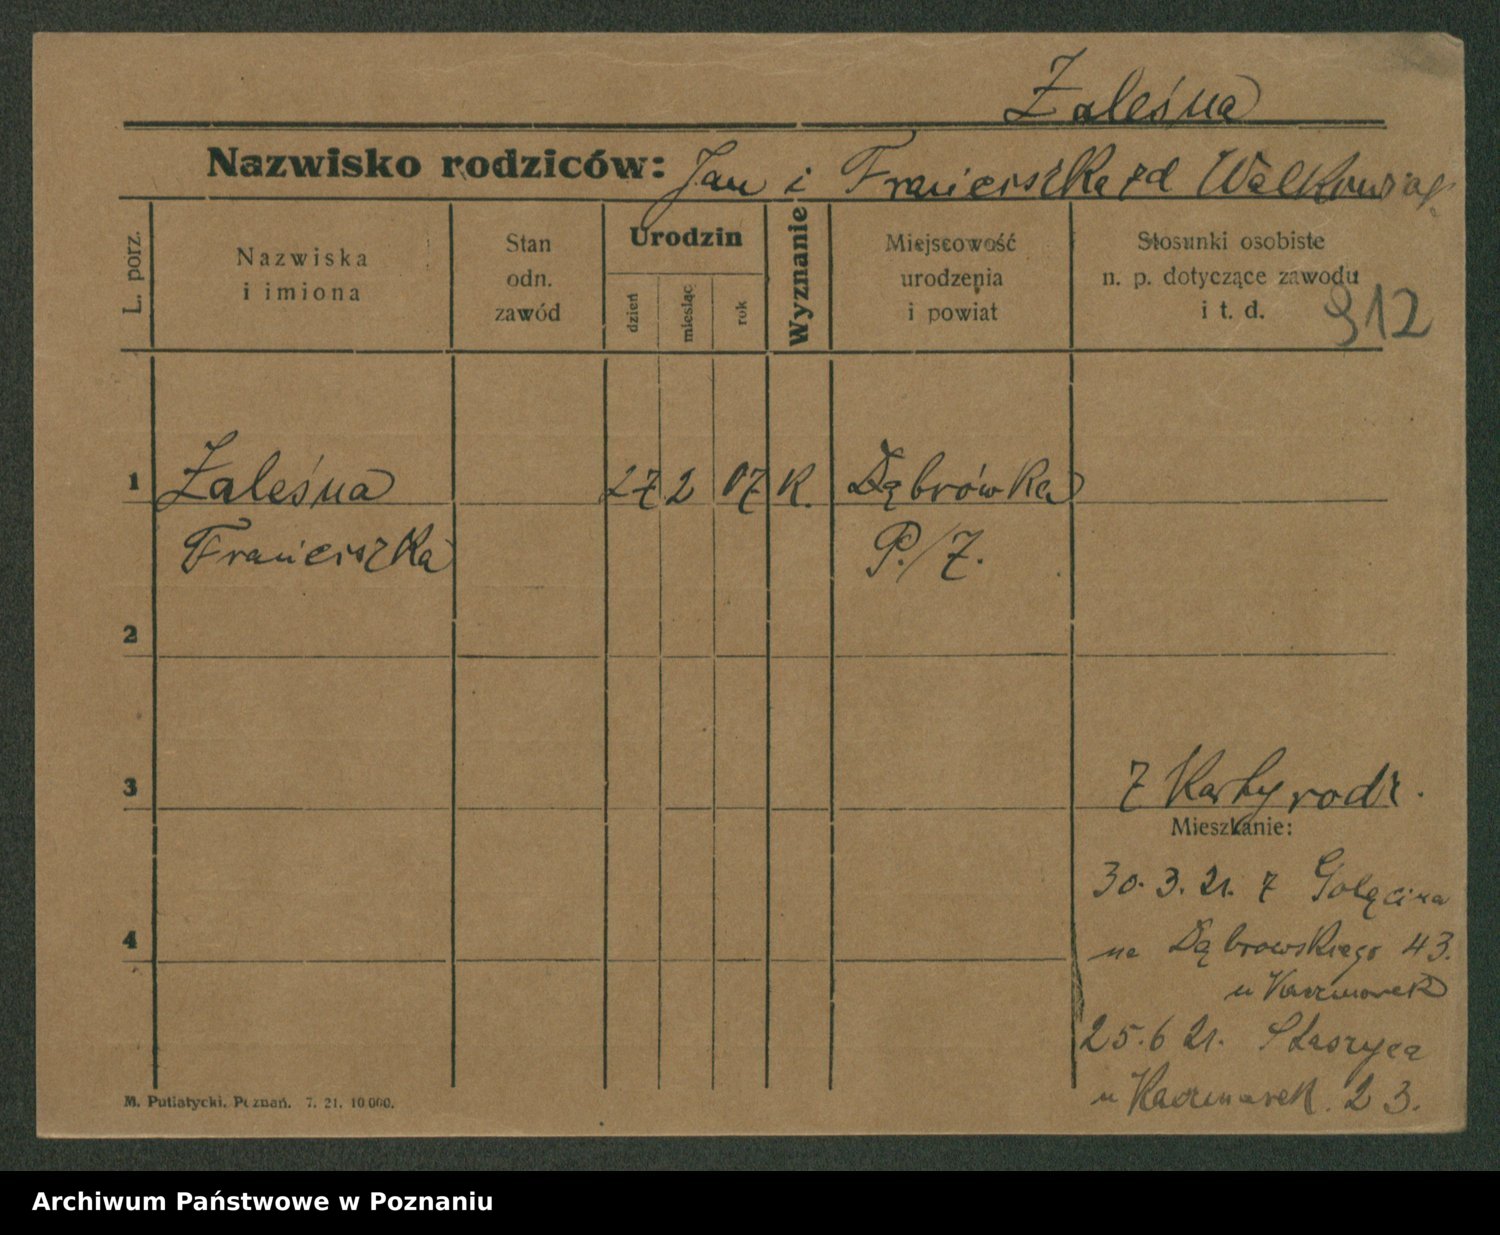 Zaleśna
Nazwisko rodziców: Jan i Franciszka zd Walkowiak
L. porz.
Nazwiska
i imiona
Stan
odn.
zawód
Urodzin
dzień
miesiąc
rok
Wyznanie
Miejscowość
urodzenia
i powiat
Stosunki osobiste
n. p. dotyczące zawodu
i t. d.
912
1 Zaleśna 27 2 07 K. Dąbrówka
Franciszka P./Z.
2
3 z Karty rodz.
Mieszkanie:
30. 3. 21. z Golęcina
4 na Dąbrowskiego 43.
u Kaczmarek
25. 6 21. Staszyca
u Kaczmarek. 23.
M. Putiatycki, Poznań. 7. 21. 10,000.
Archiwum Państwowe w Poznaniu